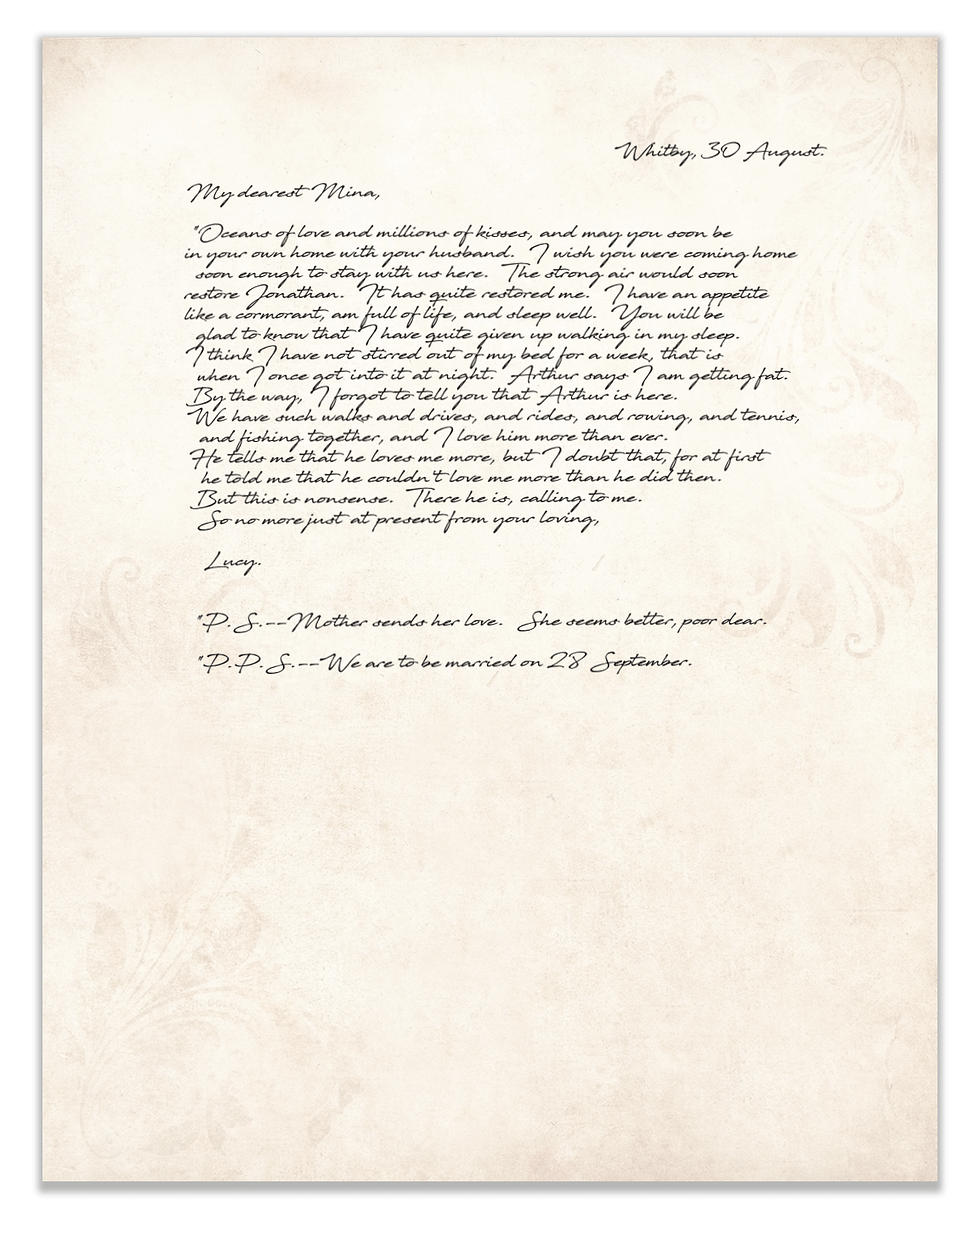 Whitby, 30 August.
My dearest Mina,
"Oceans of love and millions of kisses, and may you soon be
in your own home with your husband. I wish you were coming home
soon enough to stay with us here. The strong air would soon
restore Jonathan. It has quite restored me. I have an appetite
like a cormorant, am full of life, and sleep well. You will be
glad to know that I have quite given up walking in my sleep.
I think I have not stirred out of my bed for a week, that is
when I once got into it at night. Arthur says I am getting fat.
By the way, I forgot to tell you that Arthur is here.
We have such walks and drives, and rides, and rowing, and tennis,
and fishing together, and I love him more than ever.
He tells me that he loves me more, but I doubt that, for at first
he told me that he couldn't love me more than he did then.
But this is nonsense. There he is, calling to me.
So no more just at present from your loving,
Lucy.
"P. S.--Mother sends her love. She seems better, poor dear.
"P.P. S.--We are to be married on 28 September.